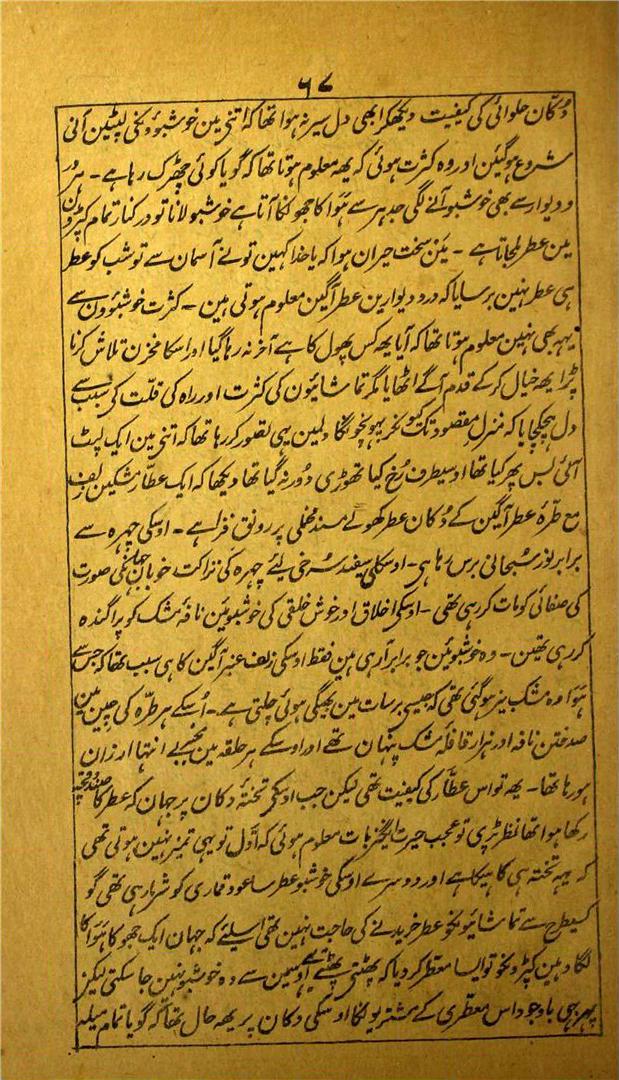 ۶۷
دُکان حلوائی کی کیفیت دیکھکر ابھی دل سیر نہوا تھا کہ اتنی مین خوشبوؤنکی لپٹین آنی
شروع ہوگئین اور وہ کثرت ہوئی کہ یھہ معلوم ہوتا تھا کہ گویا کوئی چھڑک رہا ہے ۔ ہر در
و دیوار سے بھی خوشبو آنے لگی جدہر سے ہَوا کا جھونکا آتا ہے خوشبو لانا تو درکنار تمام کپڑون
مین عطر ملجاتا ہے ۔ مین سخت حیران ہوا کہ یا خدا کہین تو نے آسمان سے تو شب کو عطر
ہی عطر نہین برسایا کہ در و دیوارین عطر آگین معلوم ہوتی ہین ۔ کثرت خوشبوؤن سے
یہہ بھی نہین معلوم ہوتا تھا کہ آیا یھہ کس پھول کا ہے آخر نہ رہا گیا اور اسکا مخزن تلاش کرنا
پڑا یھہ خیال کر کے قدم آگے اٹھایا مگر تماشائیون کی کثرت اور راہ کی قلّت کی سبب سے
دل ہچکچایا کہ منزلِ مقصود تک کیونکر پہونچونگا دلمین یہی تصور کر رہا تھا کہ اتنی مین ایک لپٹ
آگئی بس پھر کیا تھا اوسیطرف رُخ کیا تھوڑی دُور نہ گیا تھا دیکھا کہ ایک عطّار مشکین زلف
مع طرّۂ عطر آگین کے دُکان عطر کھولے مسند مخملی پر رونق فزا ہے ۔ اوسکی چہرہ سے
برابر نور سُبحانی برس رہا ہی ۔ اوسکی سفید سُرخی لئے چہرہ کی نزاکت خوبان صورت
کی صفائی کو مات کر رہی تھی ۔ اوسکی اخلاق اور خوش خلقی کی خوشبوئین نافۂ مشک کو پراگندہ
کر رہی تھین ۔ وہ خوشبوئین جو برابر آ رہی ہین فقط اوسکی زلف عنبر آگین کا ہی سبب تھا کہ جس سے
ہَوا وہ مشک بیز ہو گئی تھی کہ جیسی برسات مین بھیگی ہوئی چلتی ہے ۔ اُسکے ہر طرّہ کی چین مین
صد ختن نافہ اور ہزار قافلۂ مشک پنہان تھے اور اوسکے ہر حلقہ مین بے انتہا ارزان
ہو رہا تھا ۔ یھہ تو اس عطّار کی کیفیت تھی لیکن جب اوسکی تختۂ دکان پر جہان کہ عطر کا صندوقچہ
رکھا ہوا تھا نظر پڑی تو عجب حیرت انگیز بات معلوم ہوئی کہ اوّل تو یہی تمیز نہین ہوتی تھی
کہ یہہ تختہ ہی کا ہیکا ہے اور دوسرے اوسکی خوشبو عطر ساعود قماری کو شرما رہی تھی گو
کسیطرح سے تماشائیونکو عطر خریدنے کی حاجت نہین تھی اسلئے کہ جہان ایک جھوکا ہَوا کا
لگا وہین کپڑونکو تو ایسا معطر کر دیا کہ پھٹتی پھٹتے اوسمین سے وہ خوشبو نہین جا سکتی لیکن
پھر بھی باوجود اس معطّری کے مشتریونکا اوسکی دکان پر یھہ حال تھا کہ گویا تمام میلہ